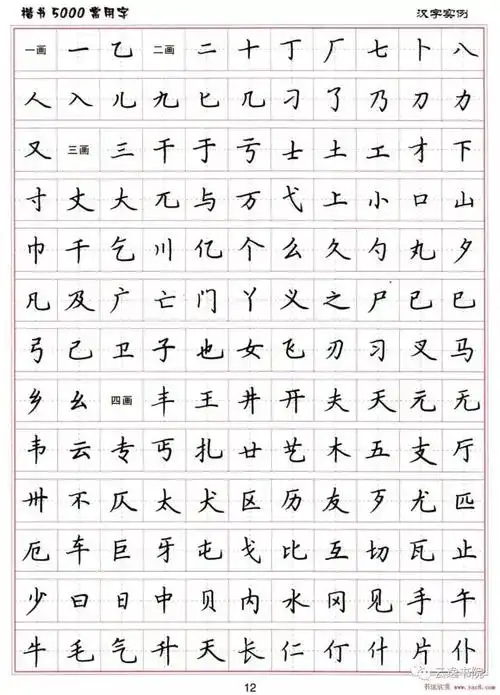 楷书5000常用字 汉字实例
一画 一 乙 二画 二 十 丁 厂 七 卜 八
人 入 儿 九 匕 几 刁 了 乃 刀 力
又 三画 三 干 于 亏 士 土 工 才 下
寸 丈 大 兀 与 万 弋 上 小 口 山
巾 千 乞 川 亿 个 么 久 勺 丸 夕
凡 及 广 亡 门 丫 义 之 尸 已 巳
弓 己 卫 子 也 女 飞 刃 习 叉 马
乡 幺 四画 丰 王 井 开 夫 天 元 无
韦 云 专 丐 扎 廿 艺 木 五 支 厅
卅 不 仄 太 犬 区 历 友 歹 尤 匹
厄 车 巨 牙 屯 戈 比 互 切 瓦 止
少 曰 日 中 贝 内 水 冈 见 手 午
牛 毛 气 升 夭 长 仁 仃 什 片 仆
12
云逸书院
www.yac8.com